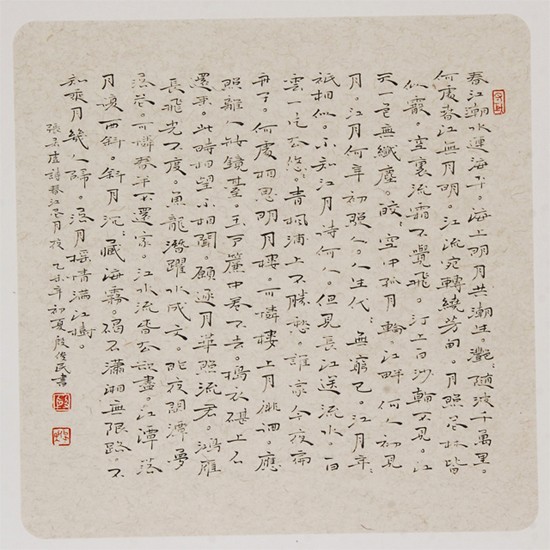 春江潮水連海平。海上明月共潮生。灧〻隨波千萬里。
何處春江無月明。江流宛轉繞芳甸。月照花林皆
似霰。空裏流霜不覺飛。汀上白沙看不見。江
天一色無纖塵。皎〻空中孤月輪。江畔何人初見
月。江月何年初照人。人生代〻無窮已。江月年〻
祇相似。不知江月待何人。但見長江送流水。白
雲一片去悠〻。青楓浦上不勝愁。誰家今夜扁
舟子。何處相思明月樓。可憐樓上月徘徊。應
照離人妝鏡臺。玉戶簾中卷不去。搗衣砧上
還來。此時相望不相聞。願逐月華照流君。鴻雁
長飛光不度。魚龍潛躍水成文。昨夜閑潭夢
落花。可憐春半不還家。江水流春去欲盡。江潭落
月復西斜。斜月沉〻藏海霧。碣石瀟湘無限路。不
知乘月幾人歸。落月搖情滿江樹。
張若虛詩春江花月夜 乙未年初夏 殷俊民書